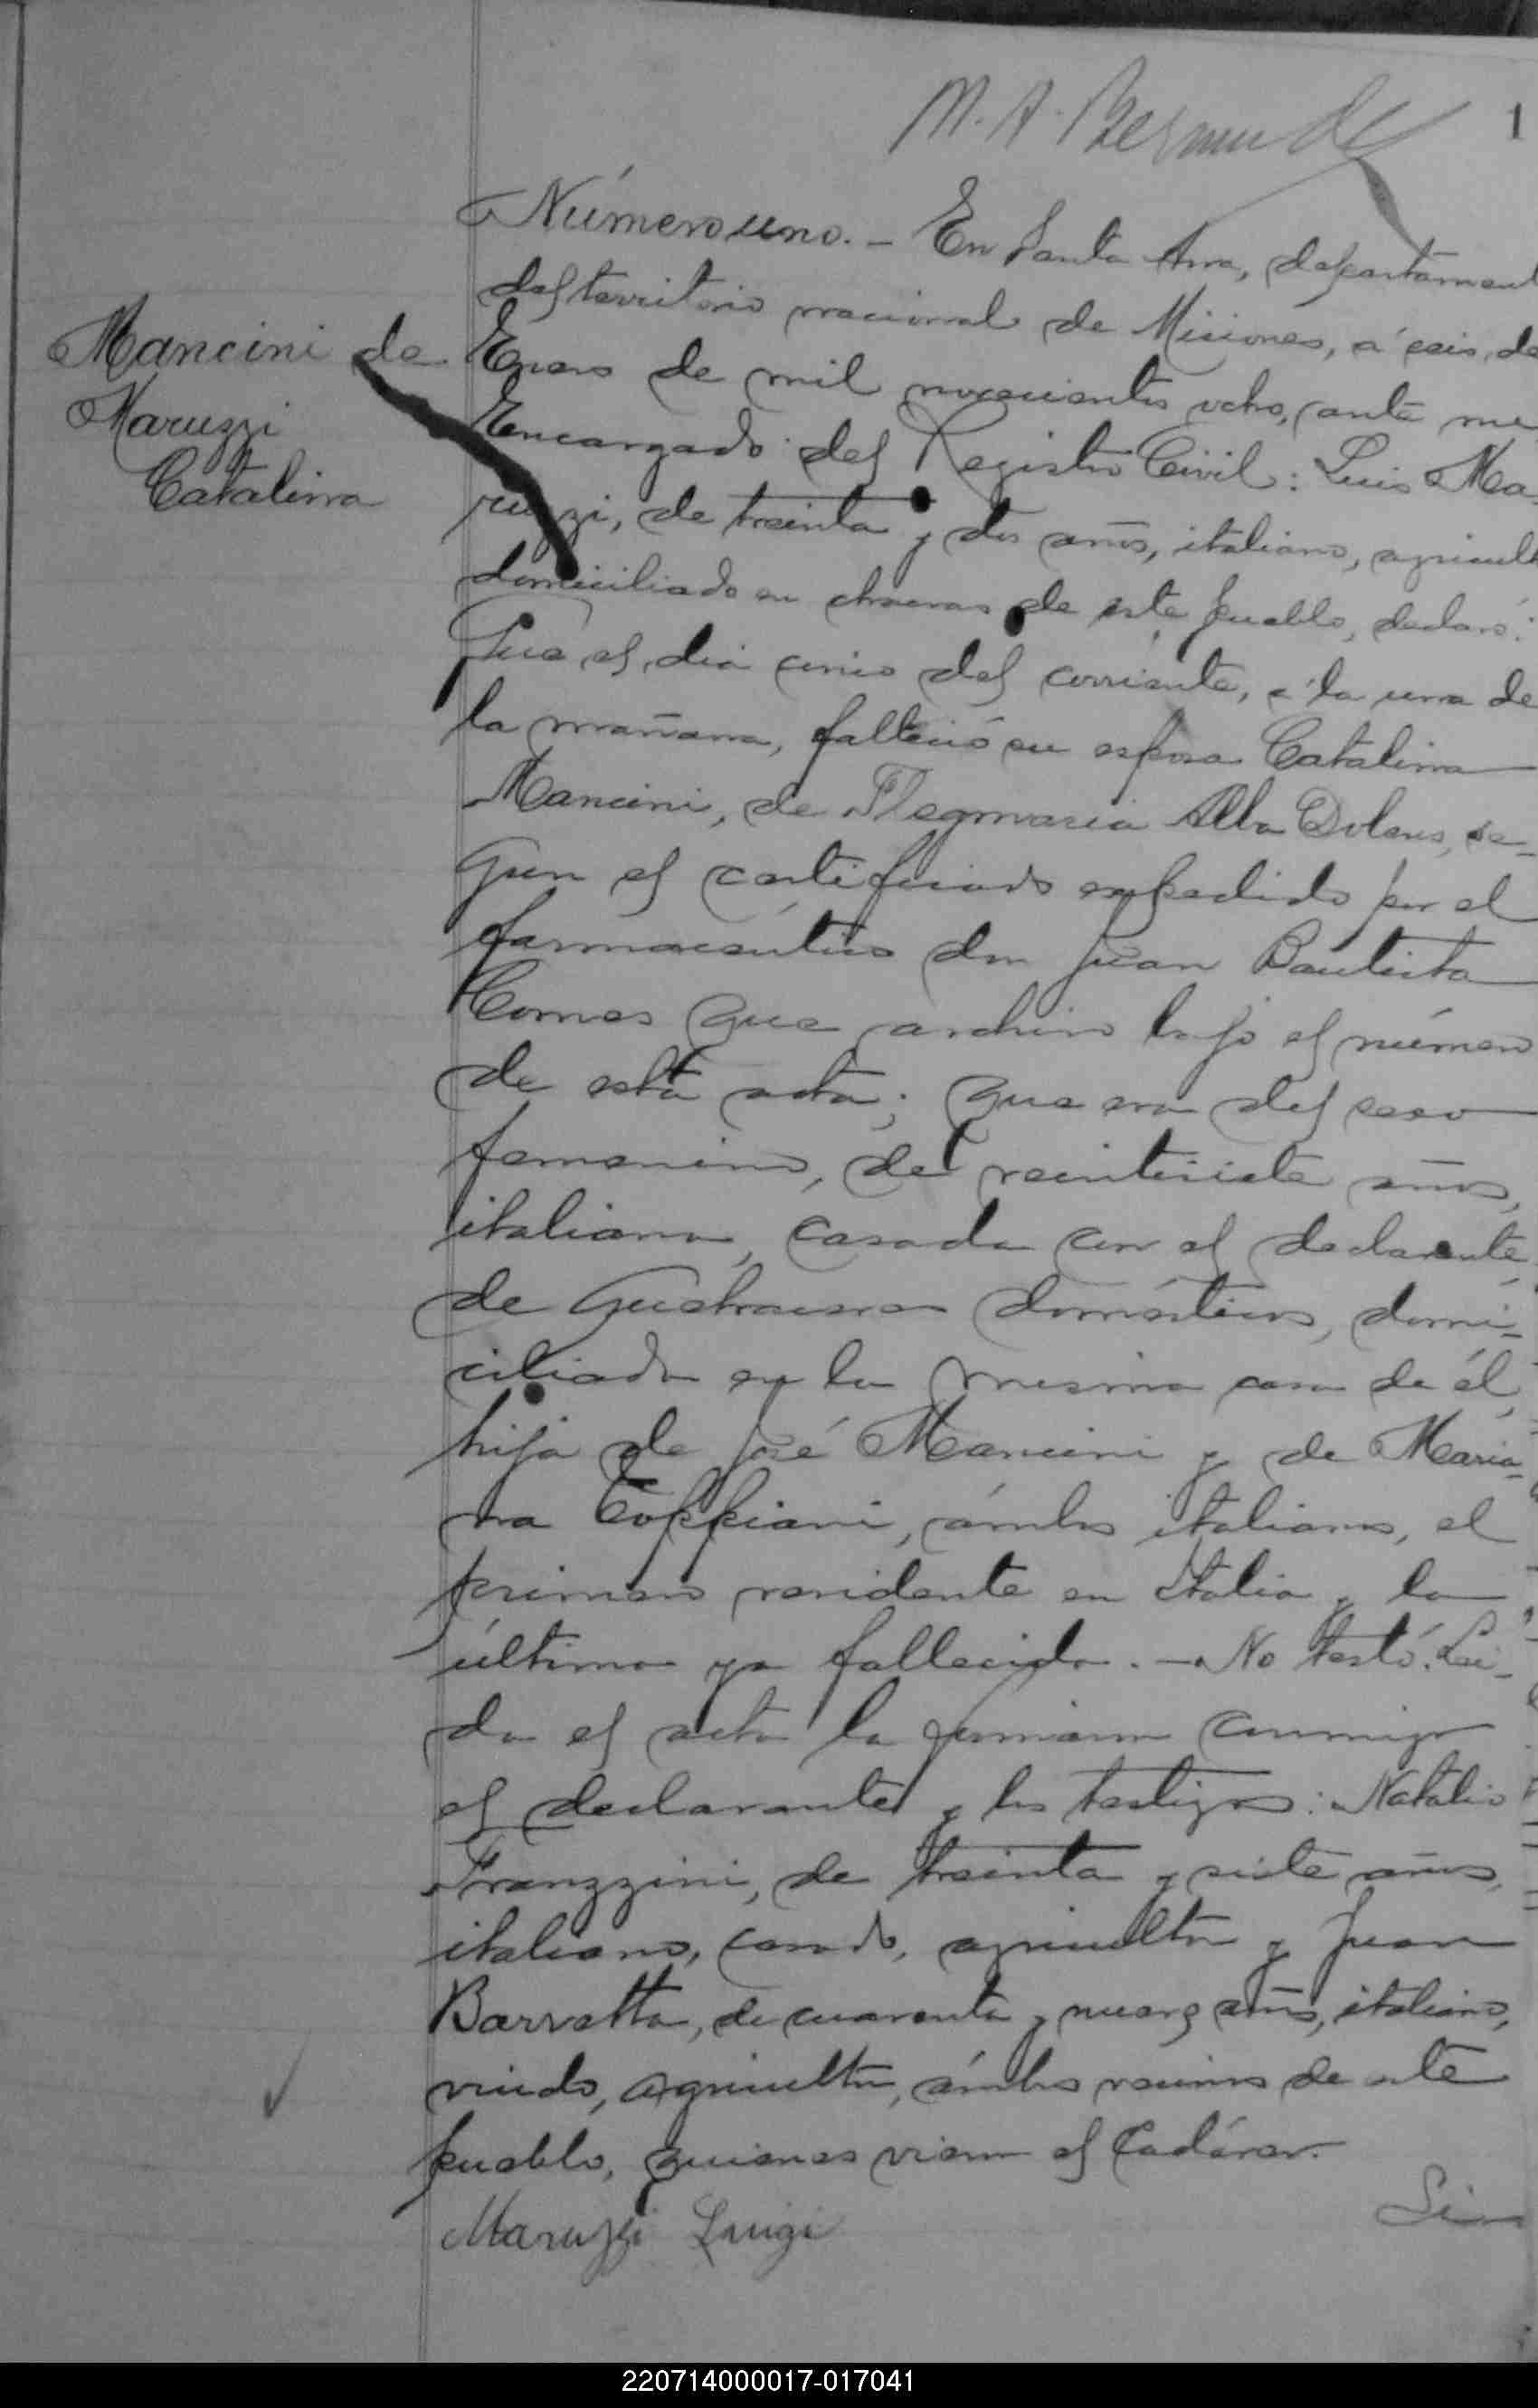 M. A. Bermudez
1
Número uno. – En Santa Ana, departament
del territorio nacional de Misiones, á seis de
Mancini de
Maruzzi
Catalina
Enero de mil novecientos ocho, ante mi
Encargado del Registro Civil: Luis Ma
ruzzi, de treinta y dos años, italiano, agricult
domiciliado en chacras de este pueblo, declaró:
Que el dia cinco del corriente, á la una de
la mañana, falleció su esposa Catalina
Mancini, de Flegmasia Alba Dolens, se-
gun el certificado expedido por el
farmacéutico don Juan Bautista
Comes que archivo bajo el número
de esta acta; que era del sexo
femenino, de veintisiete años,
italiana, casada con el declarante
de quehaceres domésticos, domi-
ciliada en la misma casa de él,
hija de José Mancini y de Maria-
na Coppiani, ámbos italianos, el
primero residente en Italia y la
última ya fallecida. – No testó. Lei-
da el acta la firmaron conmigo
el declarante y los testigos: Natalio
Franzzini, de treinta y siete años,
italiano, casado, agricultor y Juan
Barvetta, de cuarenta y nueve años, italiano,
viudo, agricultor, ámbos vecinos de este
pueblo, quienes vieron el Cadáver.
Maruzzi Luigi
220714000017-017041